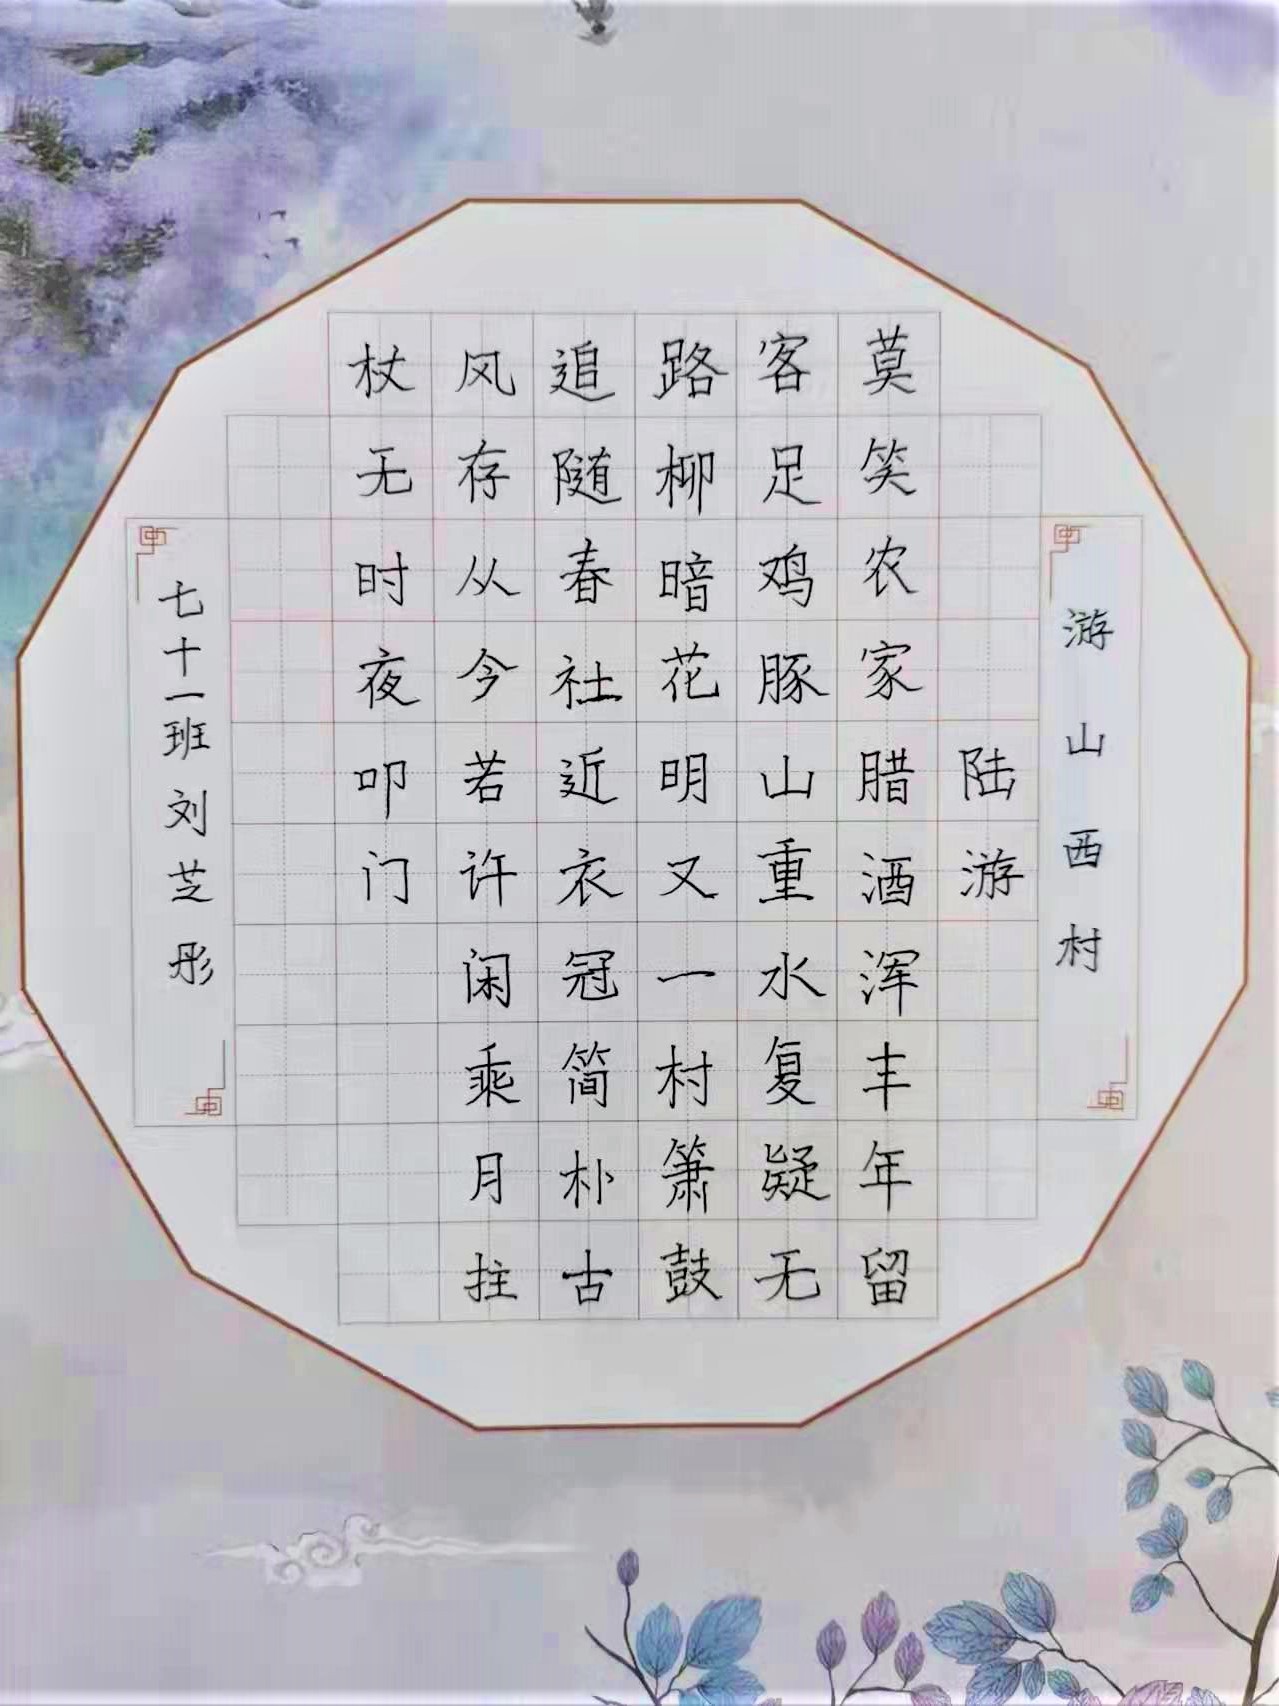 游山西村
陆游
莫笑农家腊酒浑丰年留
客足鸡豚山重水复疑无
路柳暗花明又一村箫鼓
追随春社近衣冠简朴古
风存从今若许闲乘月拄
杖无时夜叩门
七十一班刘芝彤